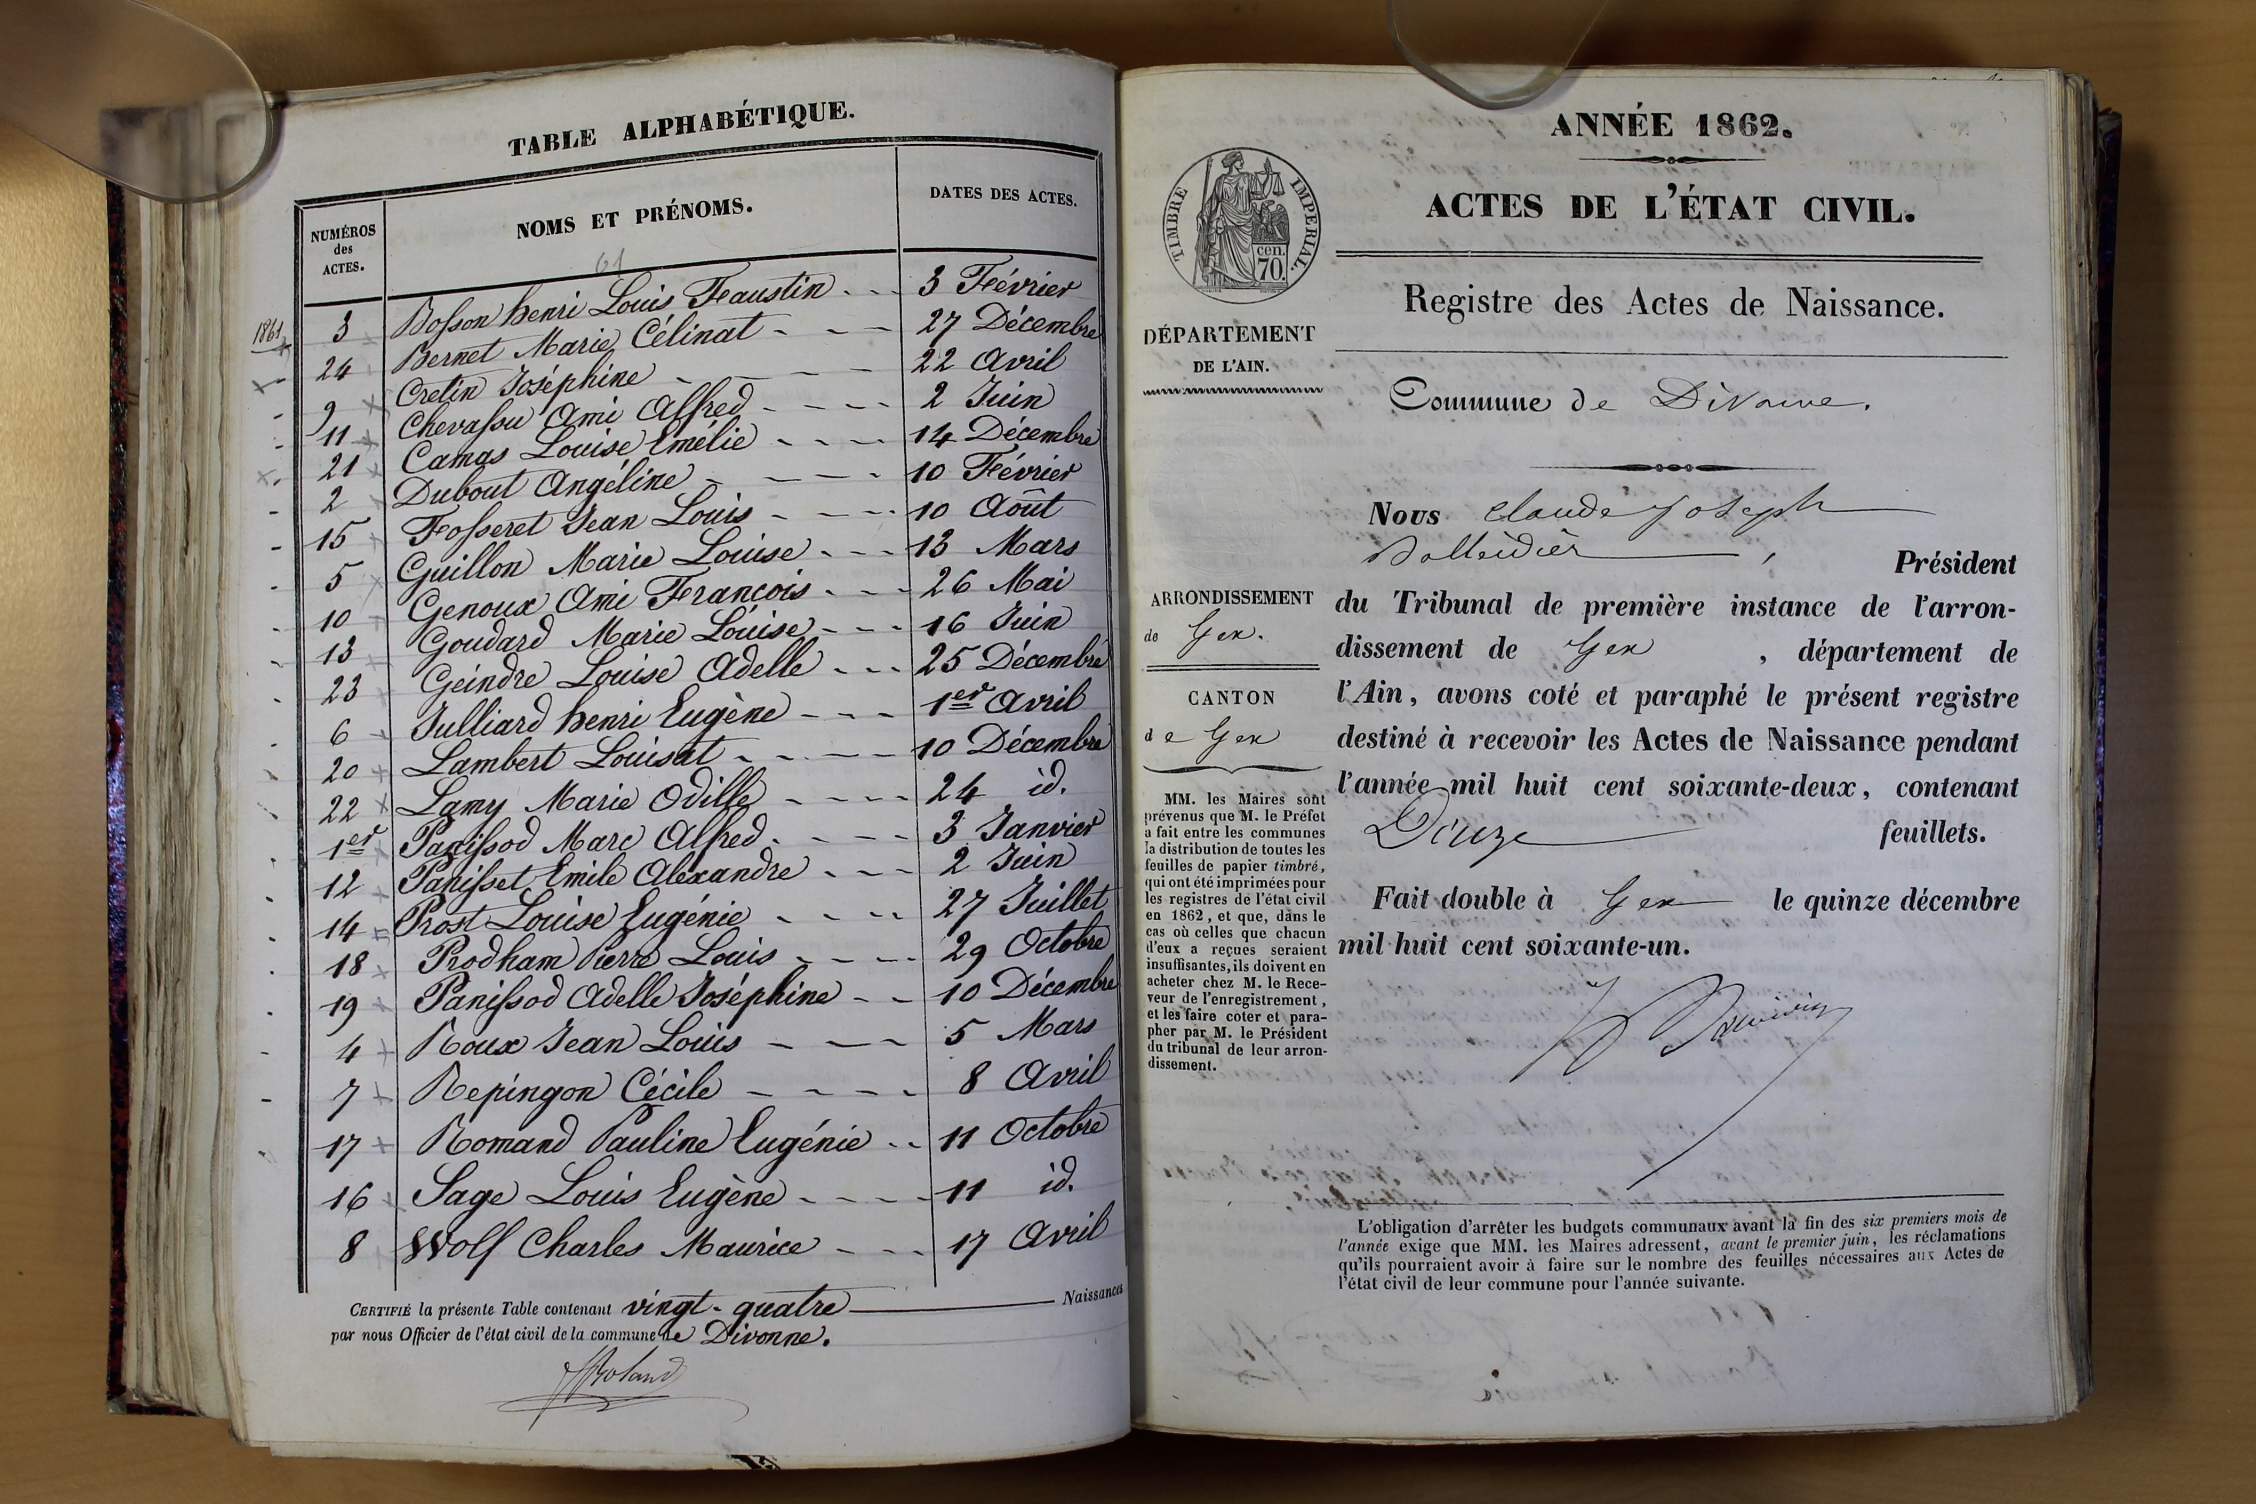 TABLE ALPHABÉTIQUE.
NUMÉROS des ACTES.
NOMS ET PRÉNOMS.
DATES DES ACTES.
61
1861
3 Bosson henri Louis Faustin 3 Février
24 Bernet Marie Célinat 27 Décembre
9 Cretin Joséphine 22 Avril
11 Chevassu Ami Alfred 2 Juin
21 Camas Louise Emélie 14 Décembre
2 Dubout Angéline 10 Février
15 Fosseret Jean Louis 10 Août
5 Guillon Marie Louise 13 Mars
10 Genoux Ami François 26 Mai
13 Goudard Marie Louise 16 Juin
23 Geindre Louise Adelle 25 Décembre
6 Julliard henri Eugène 1er Avril
20 Lambert Louisat 10 Décembre
22 Lamy Marie Odille 24 id.
1er Panissod Marc Alfred 3 Janvier
12 Panisset Emile Alexandre 2 Juin
14 Prost Louise Eugénie 27 Juillet
18 Prodham Pierre Louis 29 Octobre
19 Panissod Adelle Joséphine 10 Décembre
4 Roux Jean Louis 5 Mars
7 Repingon Cécile 8 Avril
17 Romand Pauline Eugénie 11 Octobre
16 Sage Louis Eugène 11 id.
8 Wolf Charles Maurice 17 Avril
CERTIFIÉ la présente Table contenant vingt-quatre Naissances
par nous Officier de l'état civil de la commune de Divonne.
Roland
ANNÉE 1862.
ACTES DE L'ÉTAT CIVIL.
TIMBRE IMPERIAL.
cen.
70.
Registre des Actes de Naissance.
DÉPARTEMENT
DE L'AIN.
Commune de Divonne.
Nous Claude Joseph
, Président
du Tribunal de première instance de l'arron-
dissement de Gex , département de
l'Ain, avons coté et paraphé le présent registre
destiné à recevoir les Actes de Naissance pendant
l'année mil huit cent soixante-deux, contenant
Douze feuillets.
Fait double à Gex le quinze décembre
mil huit cent soixante-un.
ARRONDISSEMENT
de Gex.
CANTON
de Gex
MM. les Maires sont
prévenus que M. le Préfet
a fait entre les communes
la distribution de toutes les
feuilles de papier timbré,
qui ont été imprimées pour
les registres de l'état civil
en 1862, et que, dans le
cas où celles que chacun
d'eux a reçues seraient
insuffisantes, ils doivent en
acheter chez M. le Rece-
veur de l'enregistrement,
et les faire coter et para-
pher par M. le Président
du tribunal de leur arron-
dissement.
L'obligation d'arrêter les budgets communaux avant la fin des six premiers mois de
l'année exige que MM. les Maires adressent, avant le premier juin, les réclamations
qu'ils pourraient avoir à faire sur le nombre des feuilles nécessaires aux Actes de
l'état civil de leur commune pour l'année suivante.